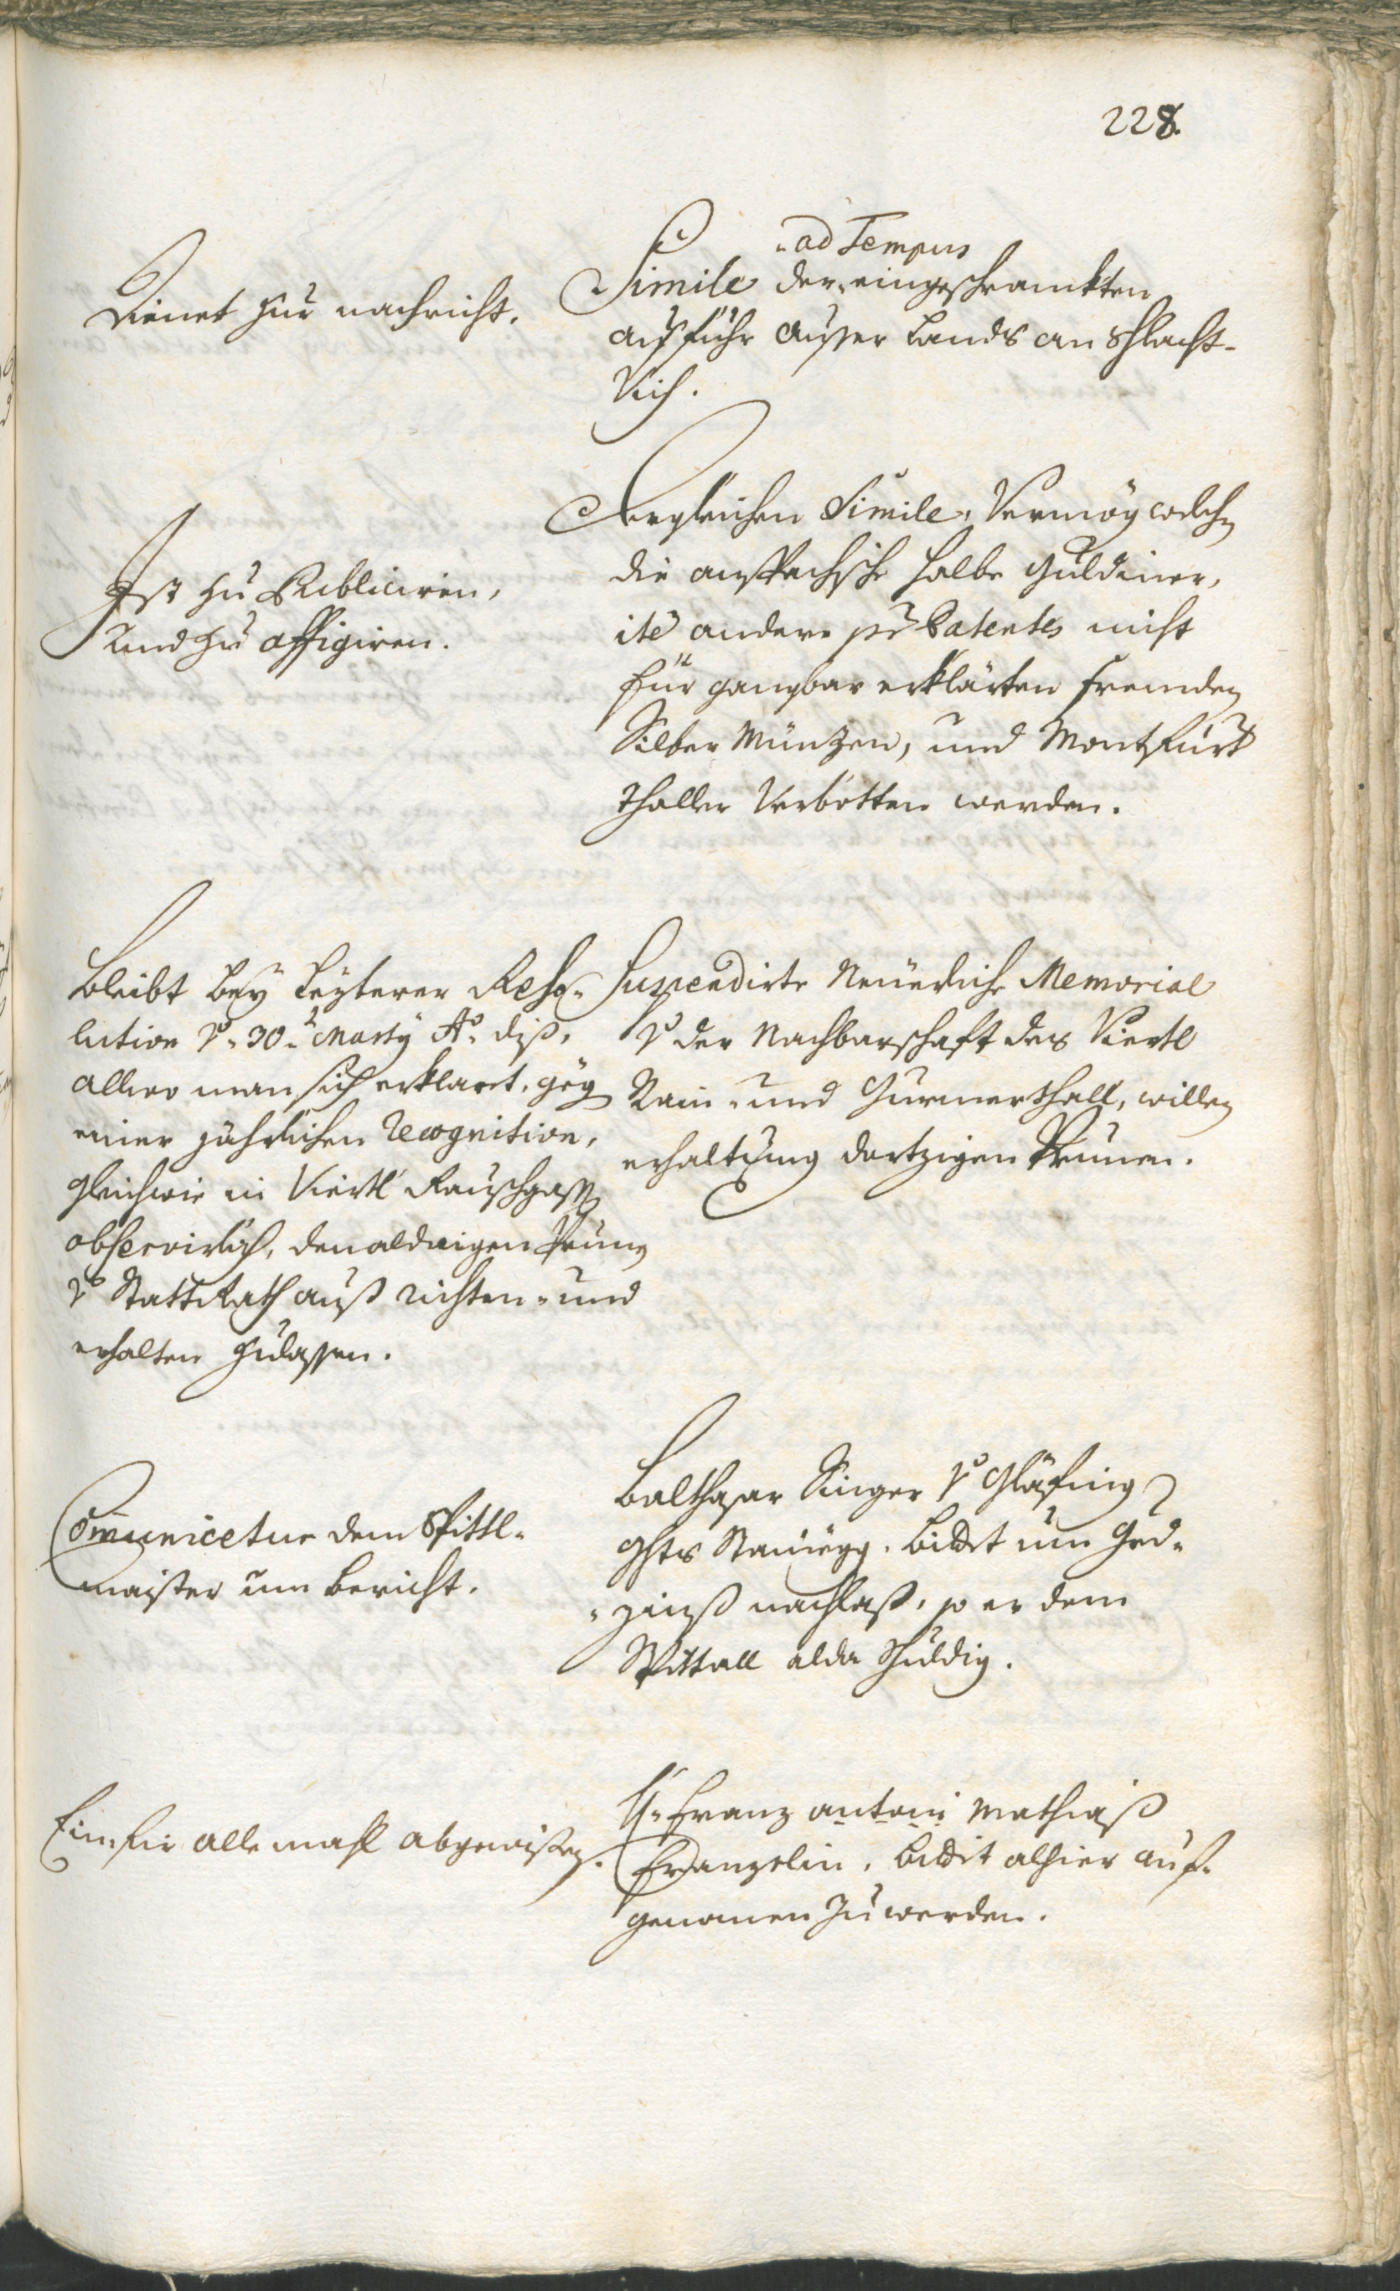 228.
Dienet zur nachricht.
ad Tempus
Simile der eingeschrankten
ausfuhr ausser Lands an schlacht-
Vich.
Ist zu Publiciren,
und zu affigiren.
Dergleichen Simile, Vermög welch
die anspachische halbe Guldiner,
ite andere pr Patentes nicht
für gangbar erklärten fremden
Silber Müntzen, und Montfurt
thaller Verbotten werden.
Bleibt bey lezterer Reso-
lution v. 30. Marty Ao. diß,
allwo man sich erklaret, geg
einer jährlichen Recognition,
gleichwie in Viertl Rauschgass
observirlich, den aldaigen Prunn
v Statt Rath auß richten- und
erhalten zulassen.
Suspendirte Neüerliche Memorial
v der Nachbarschaft des Viertl
Rain- und Gummerthall, willen
erhaltung dortzigen Prunen.
Comunicetur dem Spittl-
maister um bericht.
Balthasar Singer v
Ghts Stainegg. bittet um Grd-
zinß nachlaß, so er dem
Spittall alda schuldig.
Ein für alle mahl abgewisen.
H. Franz antoni Mathias
Franzelin, bittet alhier auf-
genomen zu werden.